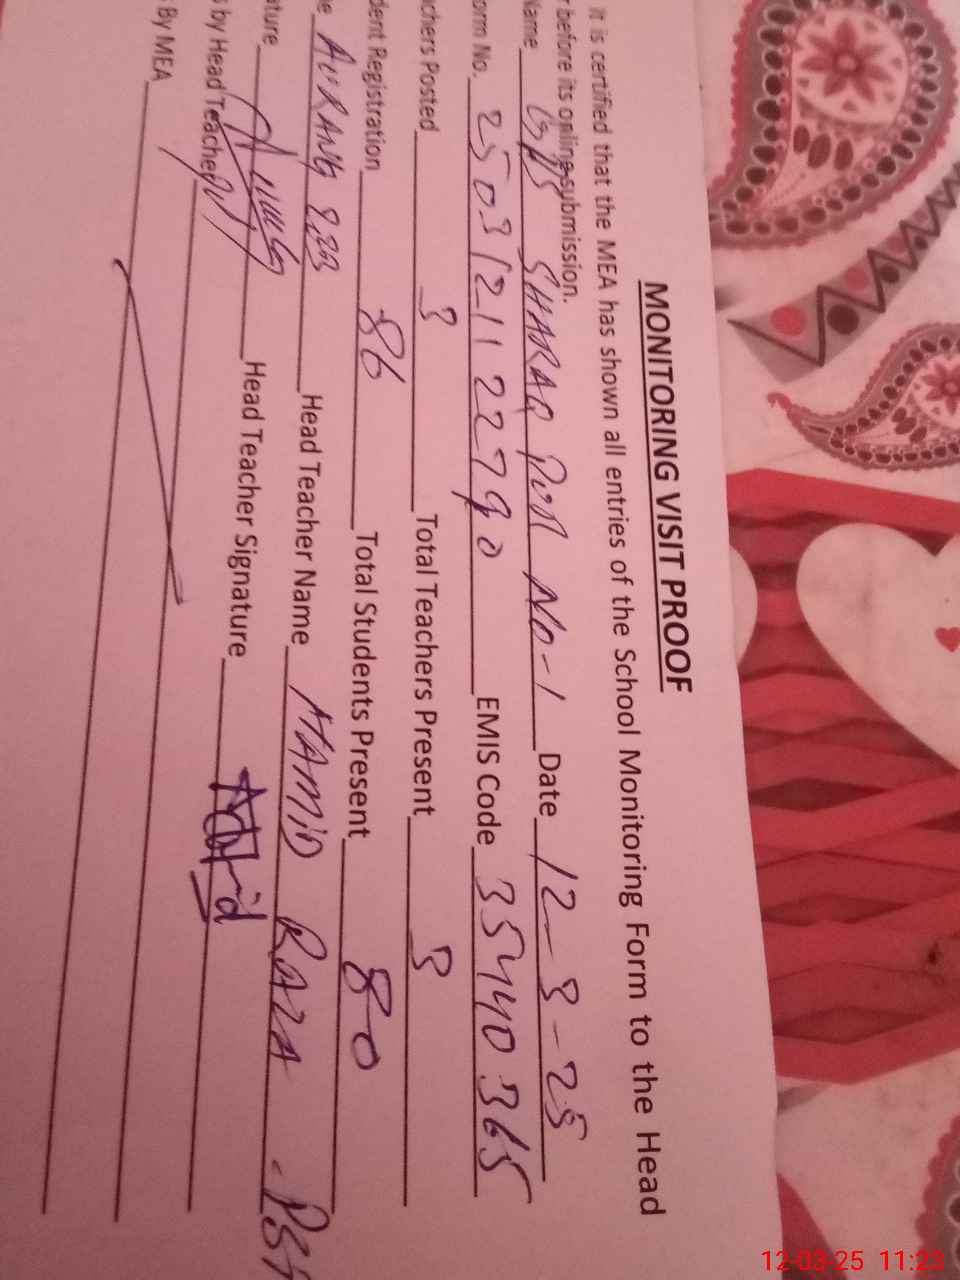 MONITORING VISIT PROOF
it is certified that the MEA has shown all entries of the School Monitoring Form to the Head
r before its online submission.
Name GPS SHARAQ PUR No-1 Date 12-3-25
orm No. 25031211 22790 EMIS Code 35440365
chers Posted 3 Total Teachers Present 3
dent Registration 86 Total Students Present 80
e AURANG Head Teacher Name HAMID RAZA - PST
ature Head Teacher Signature
s by Head Teacher
s By MEA
12-03-25 11:23